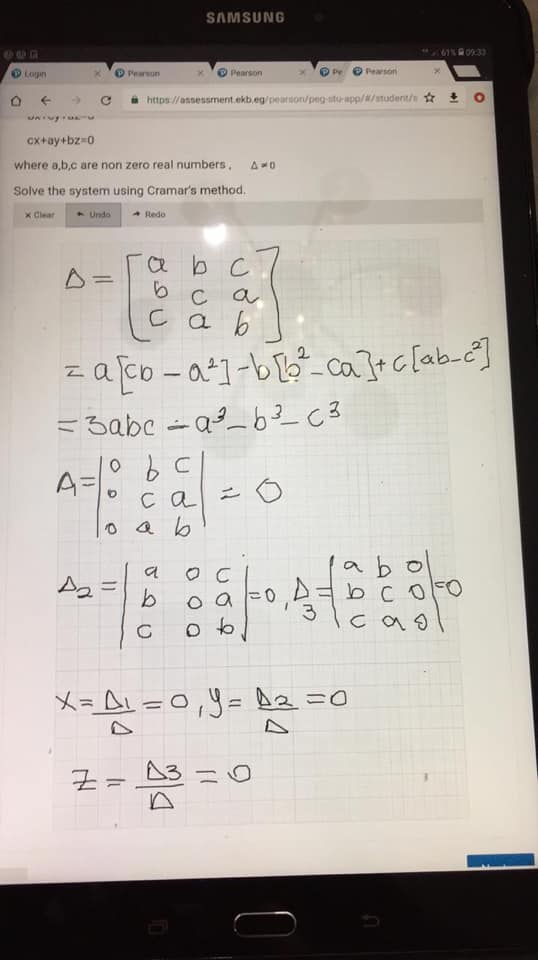 SAMSUNG
61% 09:33
Login × Pearson × Pearson × Pe Pearson ×
https://assessment.ekb.eg/pearson/peg-stu-app/#/student/s
cx+ay+bz=0
where a,b,c are non zero real numbers , Δ≠0
Solve the system using Cramar's method.
× Clear Undo Redo
Δ = [a b c
b c a
c a b]
= a[cb - a²] - b[b² - ca] + c[ab - c²]
= 3abc - a³ - b³ - c³
Δ = |0 b c
0 c a
0 a b| = 0
Δ2 = |a 0 c
b 0 a
c 0 b| = 0, Δ3 = |a b 0
b c 0
c a 0| = 0
X = Δ1/Δ = 0, y = Δ2/Δ = 0
Z = Δ3/Δ = 0